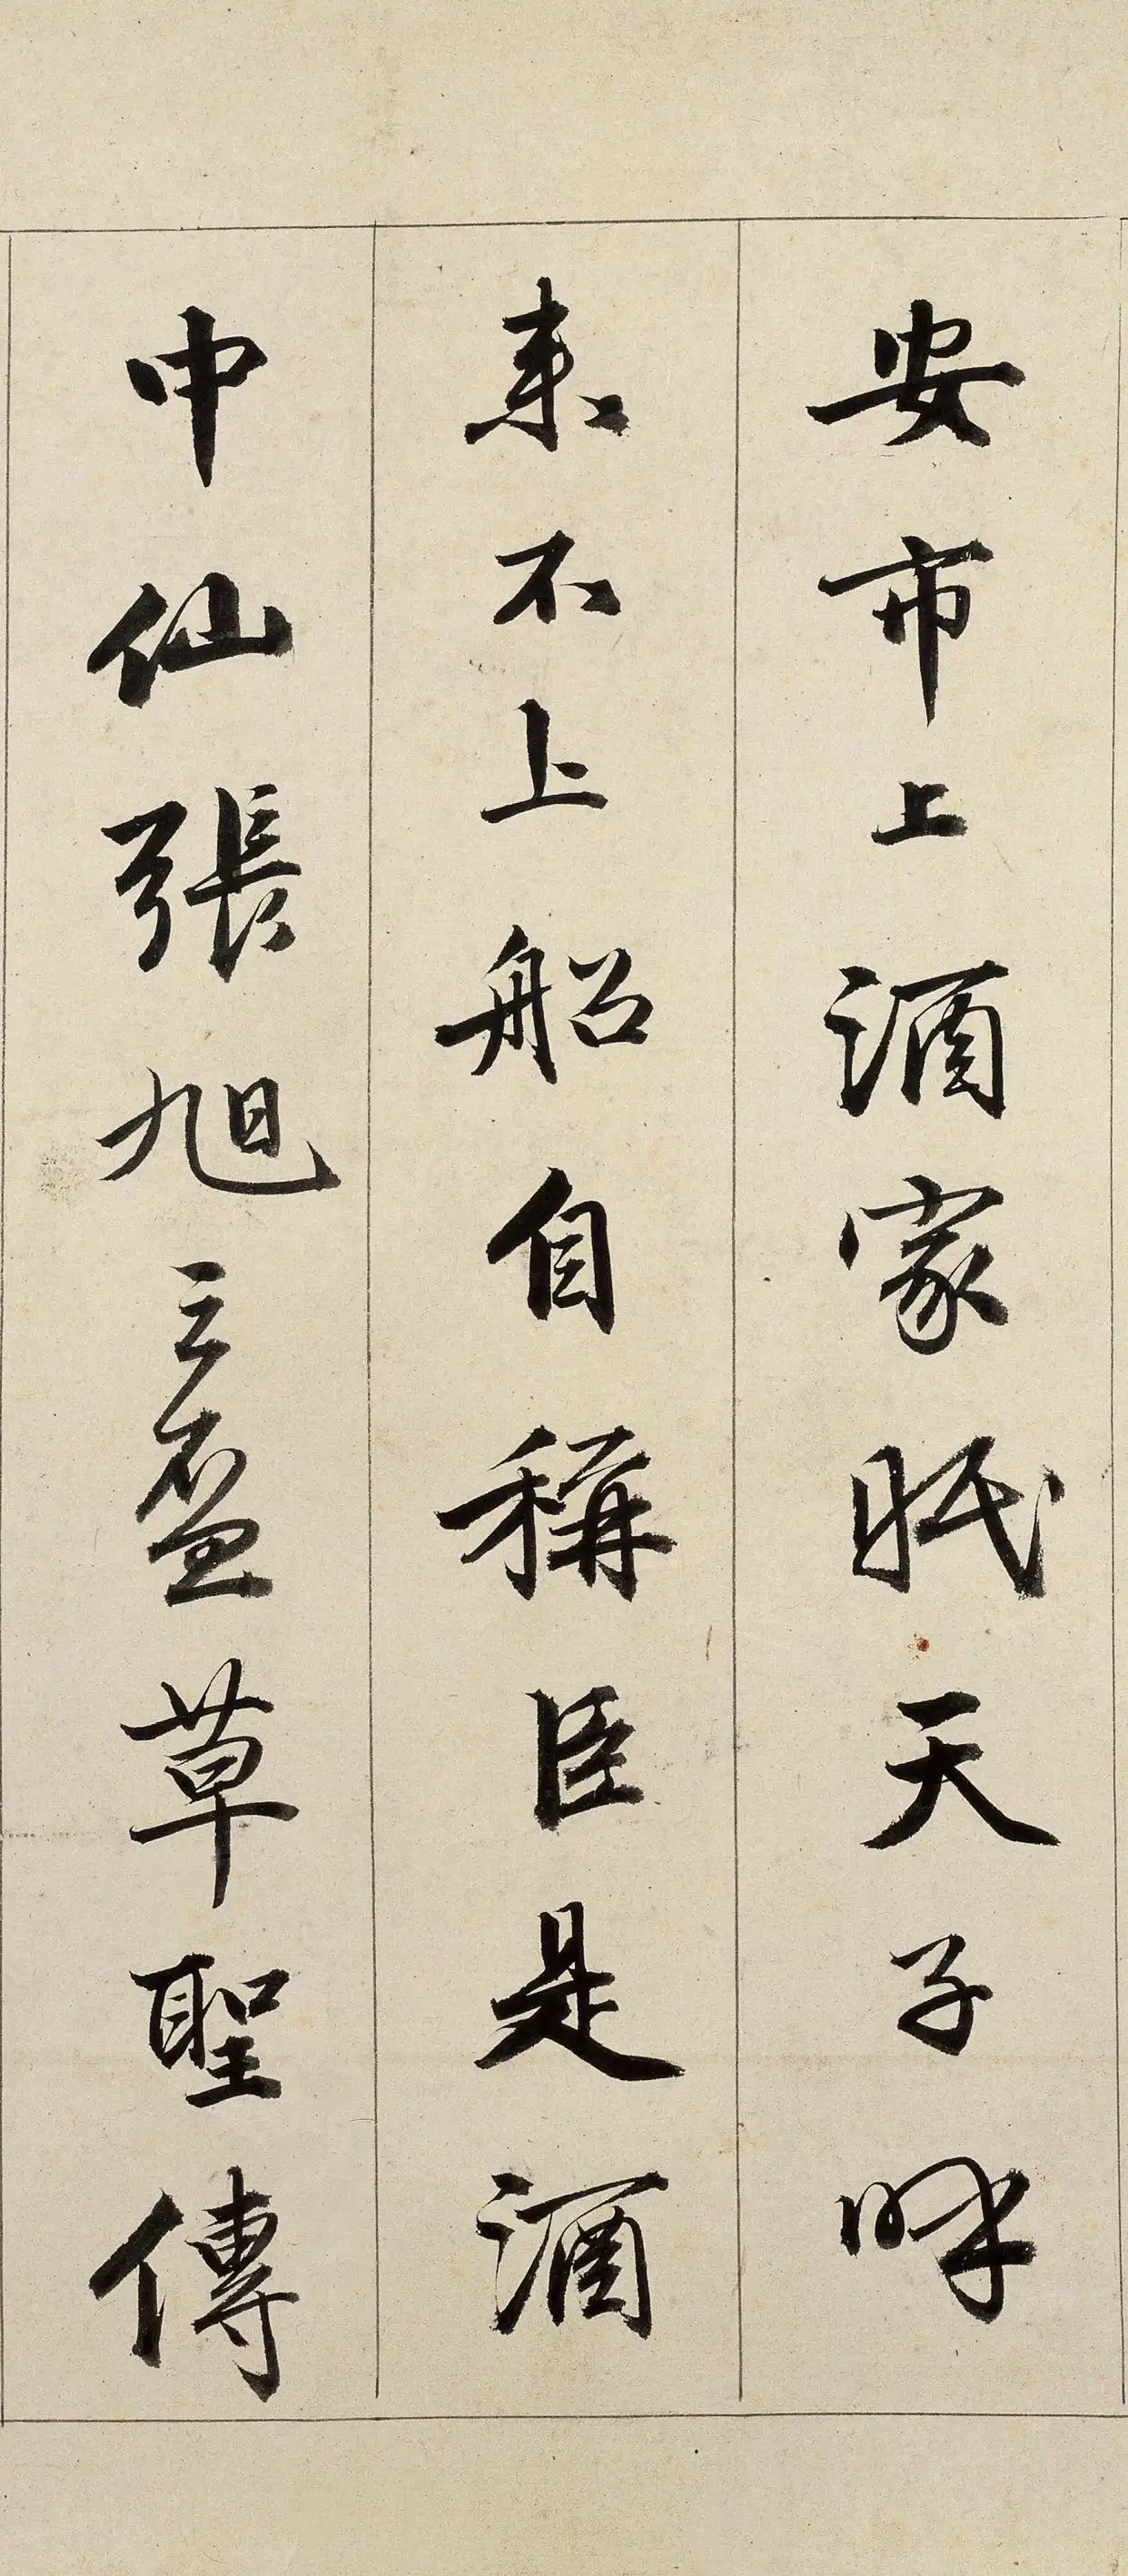 安市上酒家眠天子呼
来不上船自稱臣是酒
中仙張旭三盃草聖傳